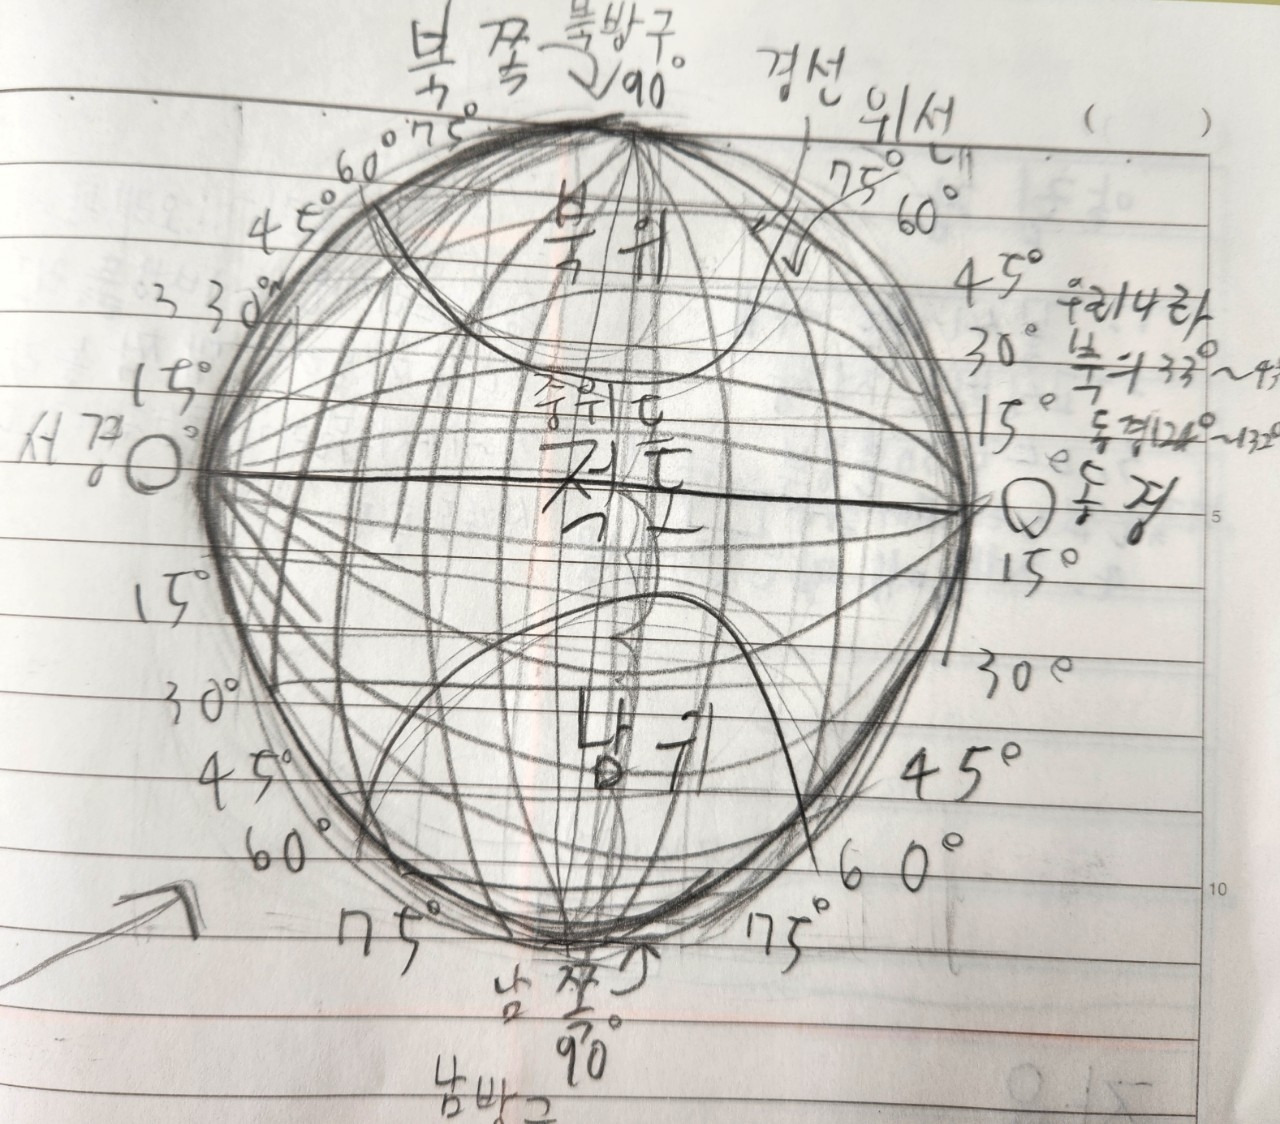 북쪽 북방구
90°
경선
위선
( )
75°
60°
45°
30°
15°
서경 0°
15°
30°
45°
60°
75°
75°
60°
45°
우리나라
30°
북위 33°~43
15°
동경 124°~132°
0° 동경
15°
30°
45°
60°
75°
북위
중위도
적도
남위
남쪽
90°
5
10